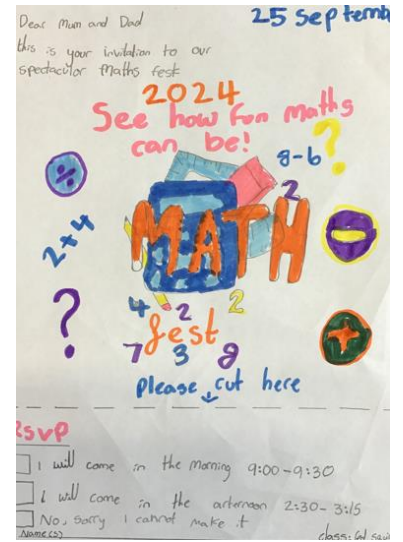 Dear Mum and Dad
25 septemb
this is your invitation to our
spectacular maths fest
2024
See how fun maths
can be!
8-6 ?
÷
2
2+4
MATH
−
?
4 2 2
fest
+
7 3 8
please cut here
Rsvp
I will come in the morning 9:00-9:30
I will come in the arternoon 2:30-3:15
No, sorry I cannot make it
Name(s)
class: